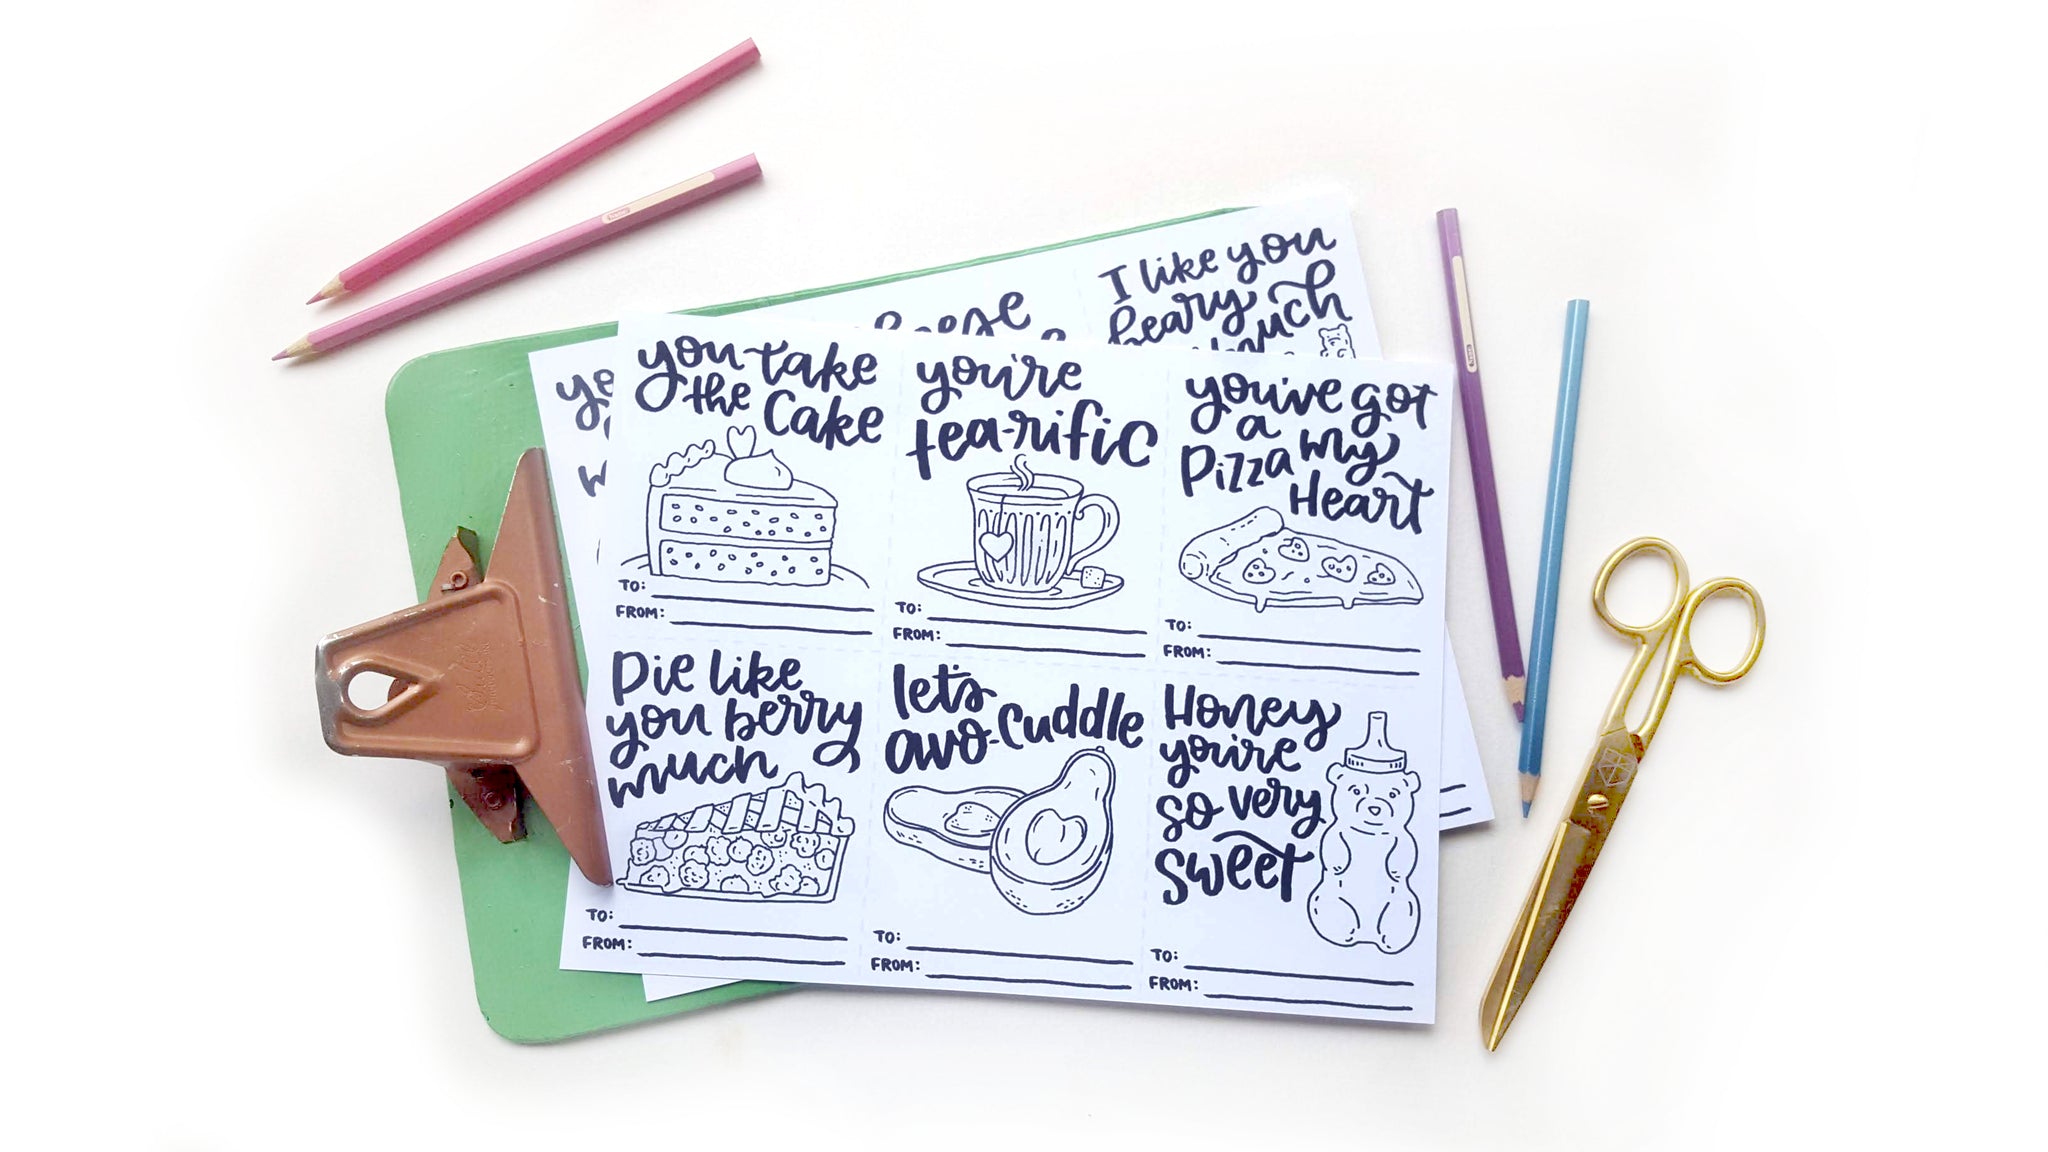 I like you
beary
much
you take
the Cake
TO:
FROM:
you're
tea-rific
TO:
FROM:
you've got
a
Pizza my
Heart
TO:
FROM:
Pie like
you berry
much
TO:
FROM:
let's
avo-Cuddle
TO:
FROM:
Honey
you're
so very
sweet
TO:
FROM: